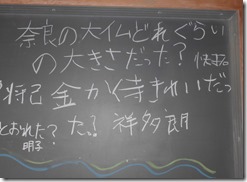 奈良の大仏どれぐらい
の大きさだった?
将己 金かく侍きれいだっ
とおれた? た? 祥多朗
明子